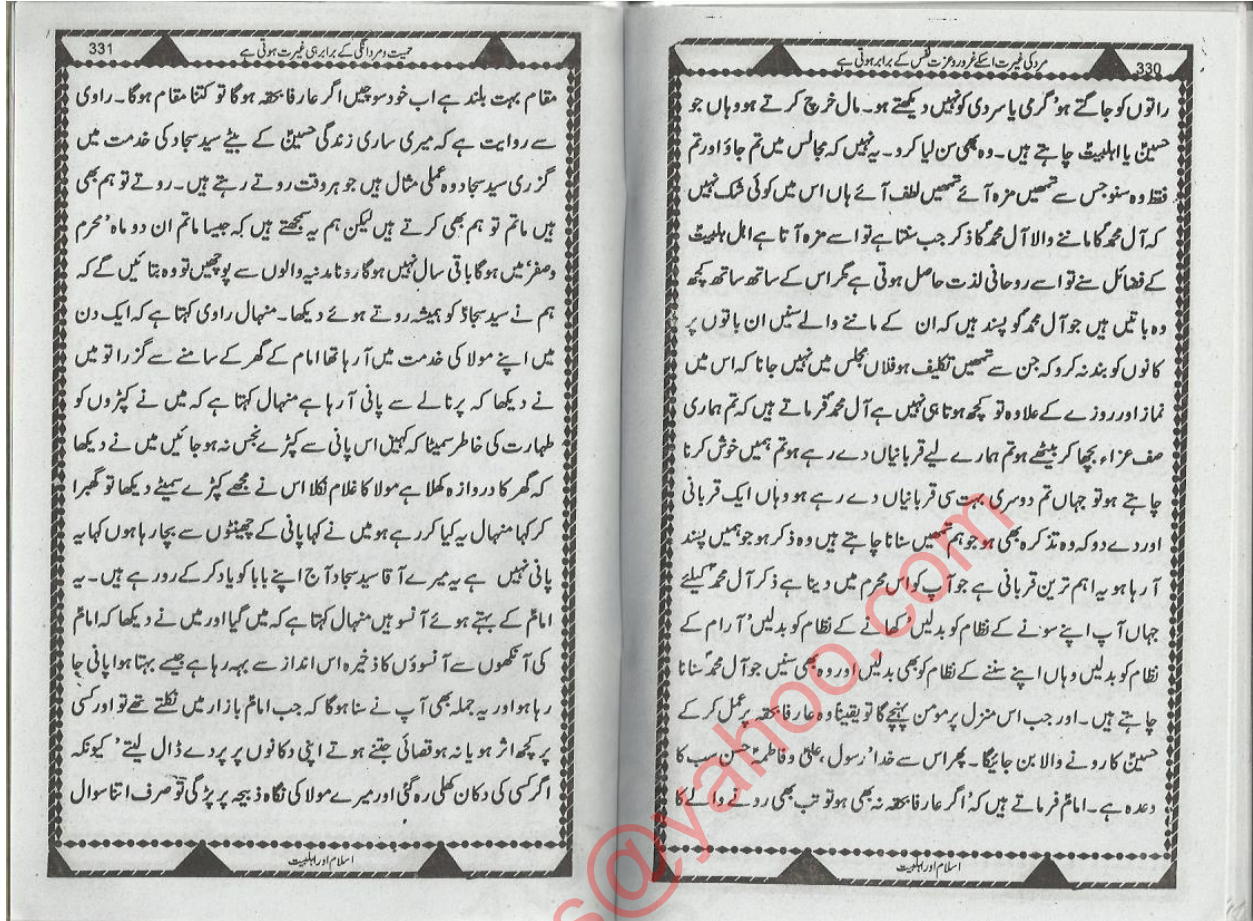 مرد کی غیرت اسکے غرور و عزت نفس کے برابر ہوتی ہے
330
راتوں کو جاگتے ہو' گرمی یا سردی کو نہیں دیکھتے ہو۔ مال خرچ کرتے ہو وہاں جو
حسینؑ یا اہلبیتؑ چاہتے ہیں۔ وہ بھی سن لیا کرو۔ یہ نہیں کہ مجالس میں تم جاؤ اور تم
فقط وہ سنو جس سے تمھیں مزہ آئے تمھیں لطف آئے ہاں اس میں کوئی شک نہیں
کہ آل محمدؐ کا ماننے والا آل محمدؐ کا ذکر جب سنتا ہے تو اسے مزہ آتا ہے اہل بیتؑ
کے فضائل سنے تو اسے روحانی لذت حاصل ہوتی ہے مگر اس کے ساتھ ساتھ کچھ
وہ باتیں ہیں جو آل محمدؐ کو پسند ہیں کہ ان کے ماننے والے سنیں ان باتوں پر
کانوں کو بند نہ کرو کہ جن سے تمھیں تکلیف ہو فلاں مجلس میں نہیں جانا کہ اس میں
نماز اور روزے کے علاوہ تو کچھ ہوتا ہی نہیں ہے آل محمدؐ فرماتے ہیں کہ تم ہماری
صف عزاء بچھا کر بیٹھے ہو تم ہمارے لیے قربانیاں دے رہے ہو تم ہمیں خوش کرنا
چاہتے ہو تو جہاں تم دوسری بہت سی قربانیاں دے رہے ہو وہاں ایک قربانی
اور دے دو کہ وہ تذکرہ بھی ہو جو ہم تمھیں سنانا چاہتے ہیں وہ ذکر ہو جو ہمیں پسند
آ رہا ہو یہ اہم ترین قربانی ہے جو آپ کو اس محرم میں دینا ہے ذکر آل محمدؐ کیلئے
جہاں آپ اپنے سونے کے نظام کو بدلیں' کھانے کے نظام کو بدلیں' آرام کے
نظام کو بدلیں وہاں اپنے سننے کے نظام کو بھی بدلیں اور وہ بھی سنیں جو آل محمدؐ سنانا
چاہتے ہیں۔ اور جب اس منزل پر مومن پہنچے گا تو یقیناً وہ عارفا بحقہ پر عمل کر کے
حسینؑ کا رونے والا بن جائیگا۔ پھر اس سے خدا' رسول، علیؑ و فاطمہؑ حسن سب کا
وعدہ ہے۔ امامؑ فرماتے ہیں کہ' اگر عارفا بحقہ نہ بھی ہو تو تب بھی رونے والے کا
اسلام اور اہلبیت
حمیت و مردانگی کے برابر ہی غیرت ہوتی ہے
331
مقام بہت بلند ہے اب خود سوچیں اگر عارفا بحقہ ہوگا تو کتنا مقام ہوگا۔ راوی
سے روایت ہے کہ میری ساری زندگی حسینؑ کے بیٹے سید سجاد کی خدمت میں
گزری سید سجاد وہ عملی مثال ہیں جو ہر وقت روتے رہتے ہیں۔ روتے تو ہم بھی
ہیں ماتم تو ہم بھی کرتے ہیں لیکن ہم یہ سمجھتے ہیں کہ جیسا ماتم ان دو ماہ' محرم
و صفر' میں ہوگا باقی سال نہیں ہوگا رونا مدینہ والوں سے پوچھیں تو وہ بتائیں گے کہ
ہم نے سید سجادؑ کو ہمیشہ روتے ہوئے دیکھا۔ منہال راوی کہتا ہے کہ ایک دن
میں اپنے مولا کی خدمت میں آ رہا تھا امام کے گھر کے سامنے سے گزرا تو میں
نے دیکھا کہ پرنالے سے پانی آ رہا ہے منہال کہتا ہے کہ میں نے کپڑوں کو
طہارت کی خاطر سمیٹا کہ کہیں اس پانی سے کپڑے نجس نہ ہو جائیں میں نے دیکھا
کہ گھر کا دروازہ کھلا ہے مولا کا غلام نکلا اس نے مجھے کپڑے سمیٹے دیکھا تو گھبرا
کر کہا منہال یہ کیا کر رہے ہو میں نے کہا پانی کے چھینٹوں سے بچا رہا ہوں کہا یہ
پانی نہیں ہے یہ میرے آقا سید سجاد آج اپنے بابا کو یاد کر کے رو رہے ہیں۔ یہ
امامؑ کے بہتے ہوئے آنسو ہیں منہال کہتا ہے کہ میں گیا اور میں نے دیکھا کہ امامؑ
کی آنکھوں سے آنسوؤں کا ذخیرہ اس انداز سے بہہ رہا ہے جیسے بہتا ہوا پانی جا
رہا ہو اور یہ جملہ بھی آپ نے سنا ہوگا کہ جب امامؑ بازار میں نکلتے تھے تو اور کسی
پر کچھ اثر ہو یا نہ ہو قصائی جتنے ہوتے اپنی دکانوں پر پردے ڈال لیتے' کیونکہ
اگر کسی کی دکان کھلی رہ گئی اور میرے مولا کی نگاہ ذبیحہ پر پڑ گی تو صرف اتنا سوال
اسلام اور اہلبیت
s@yahoo.com